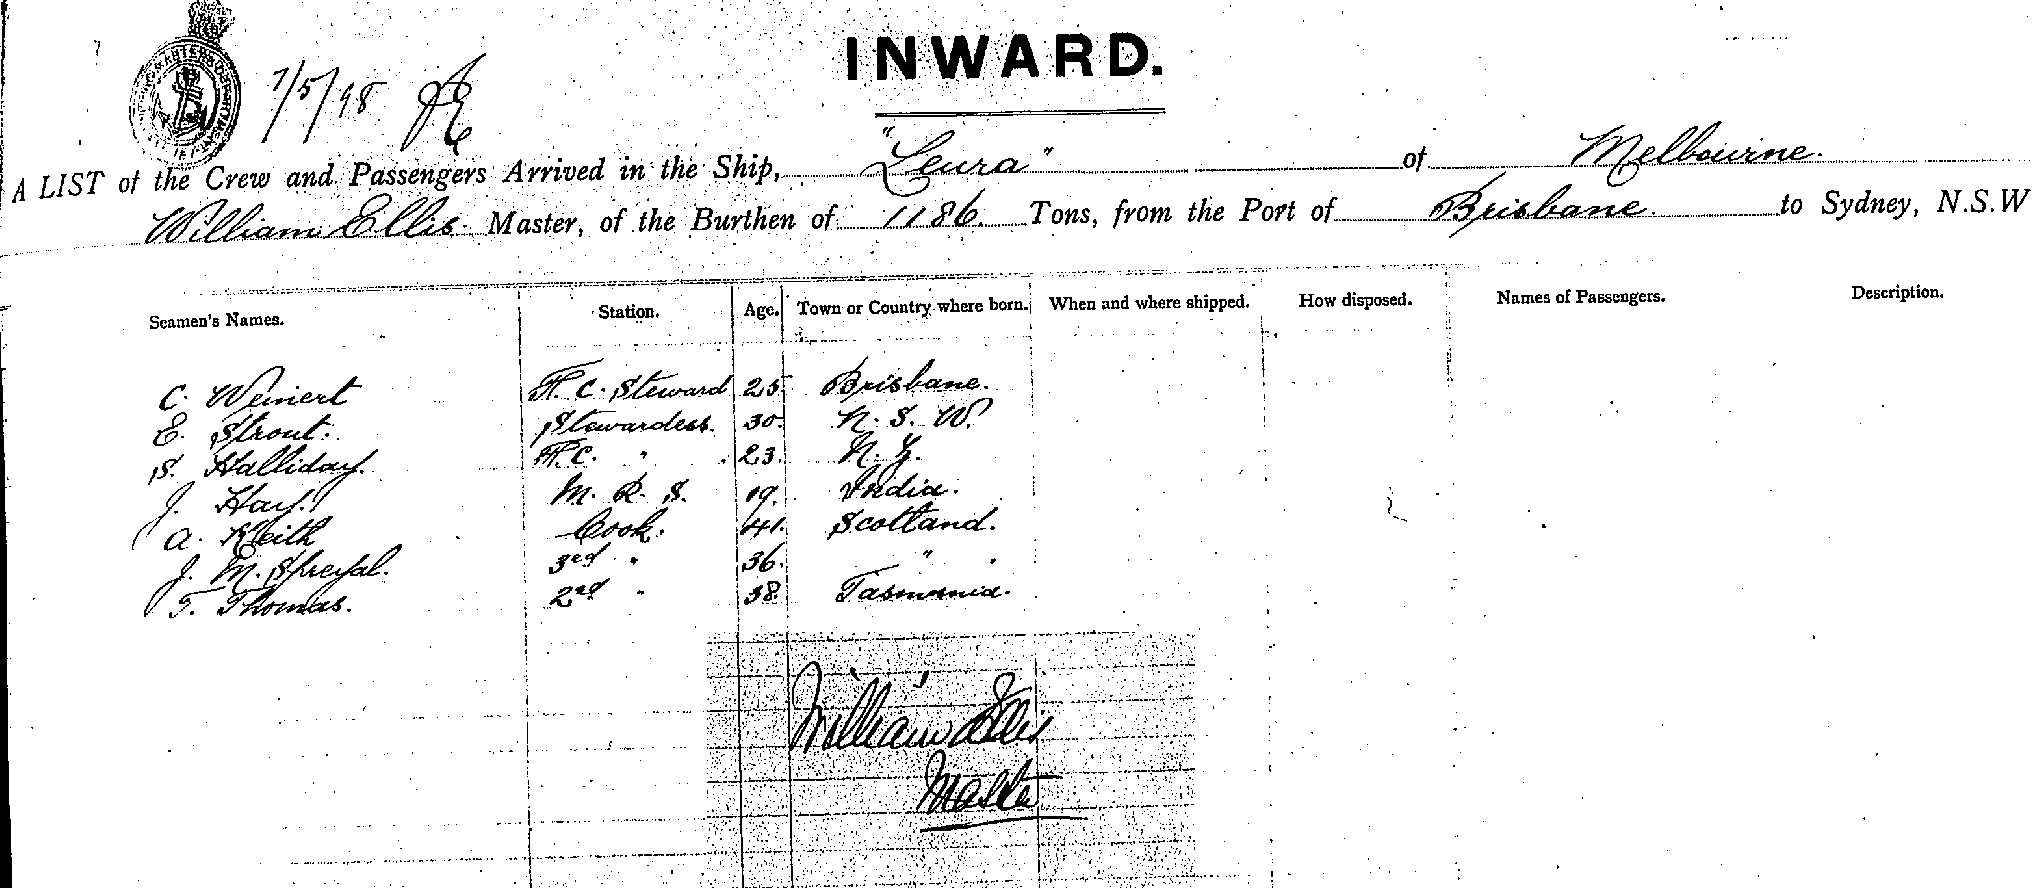 INWARD.
7/5/98
A LIST of the Crew and Passengers Arrived in the Ship, "Leura" of Melbourne.
William Ellis. Master, of the Burthen of 1186. Tons, from the Port of Brisbane. to Sydney, N.S.W
Seamen's Names. Station. Age. Town or Country where born. When and where shipped. How disposed. Names of Passengers. Description.
C. Weinert F. C. Steward 25. Brisbane.
E. Strout. Stewardess. 30. N. S. W.
S. Halliday. F.C. " 23. N. Z.
J. Hay. M. R. S. 19. India.
A. Keith Cook. 41. Scotland.
J. M. 3rd " 36. "
T. Thomas. 2nd " 38. Tasmania.
William Ellis
Master